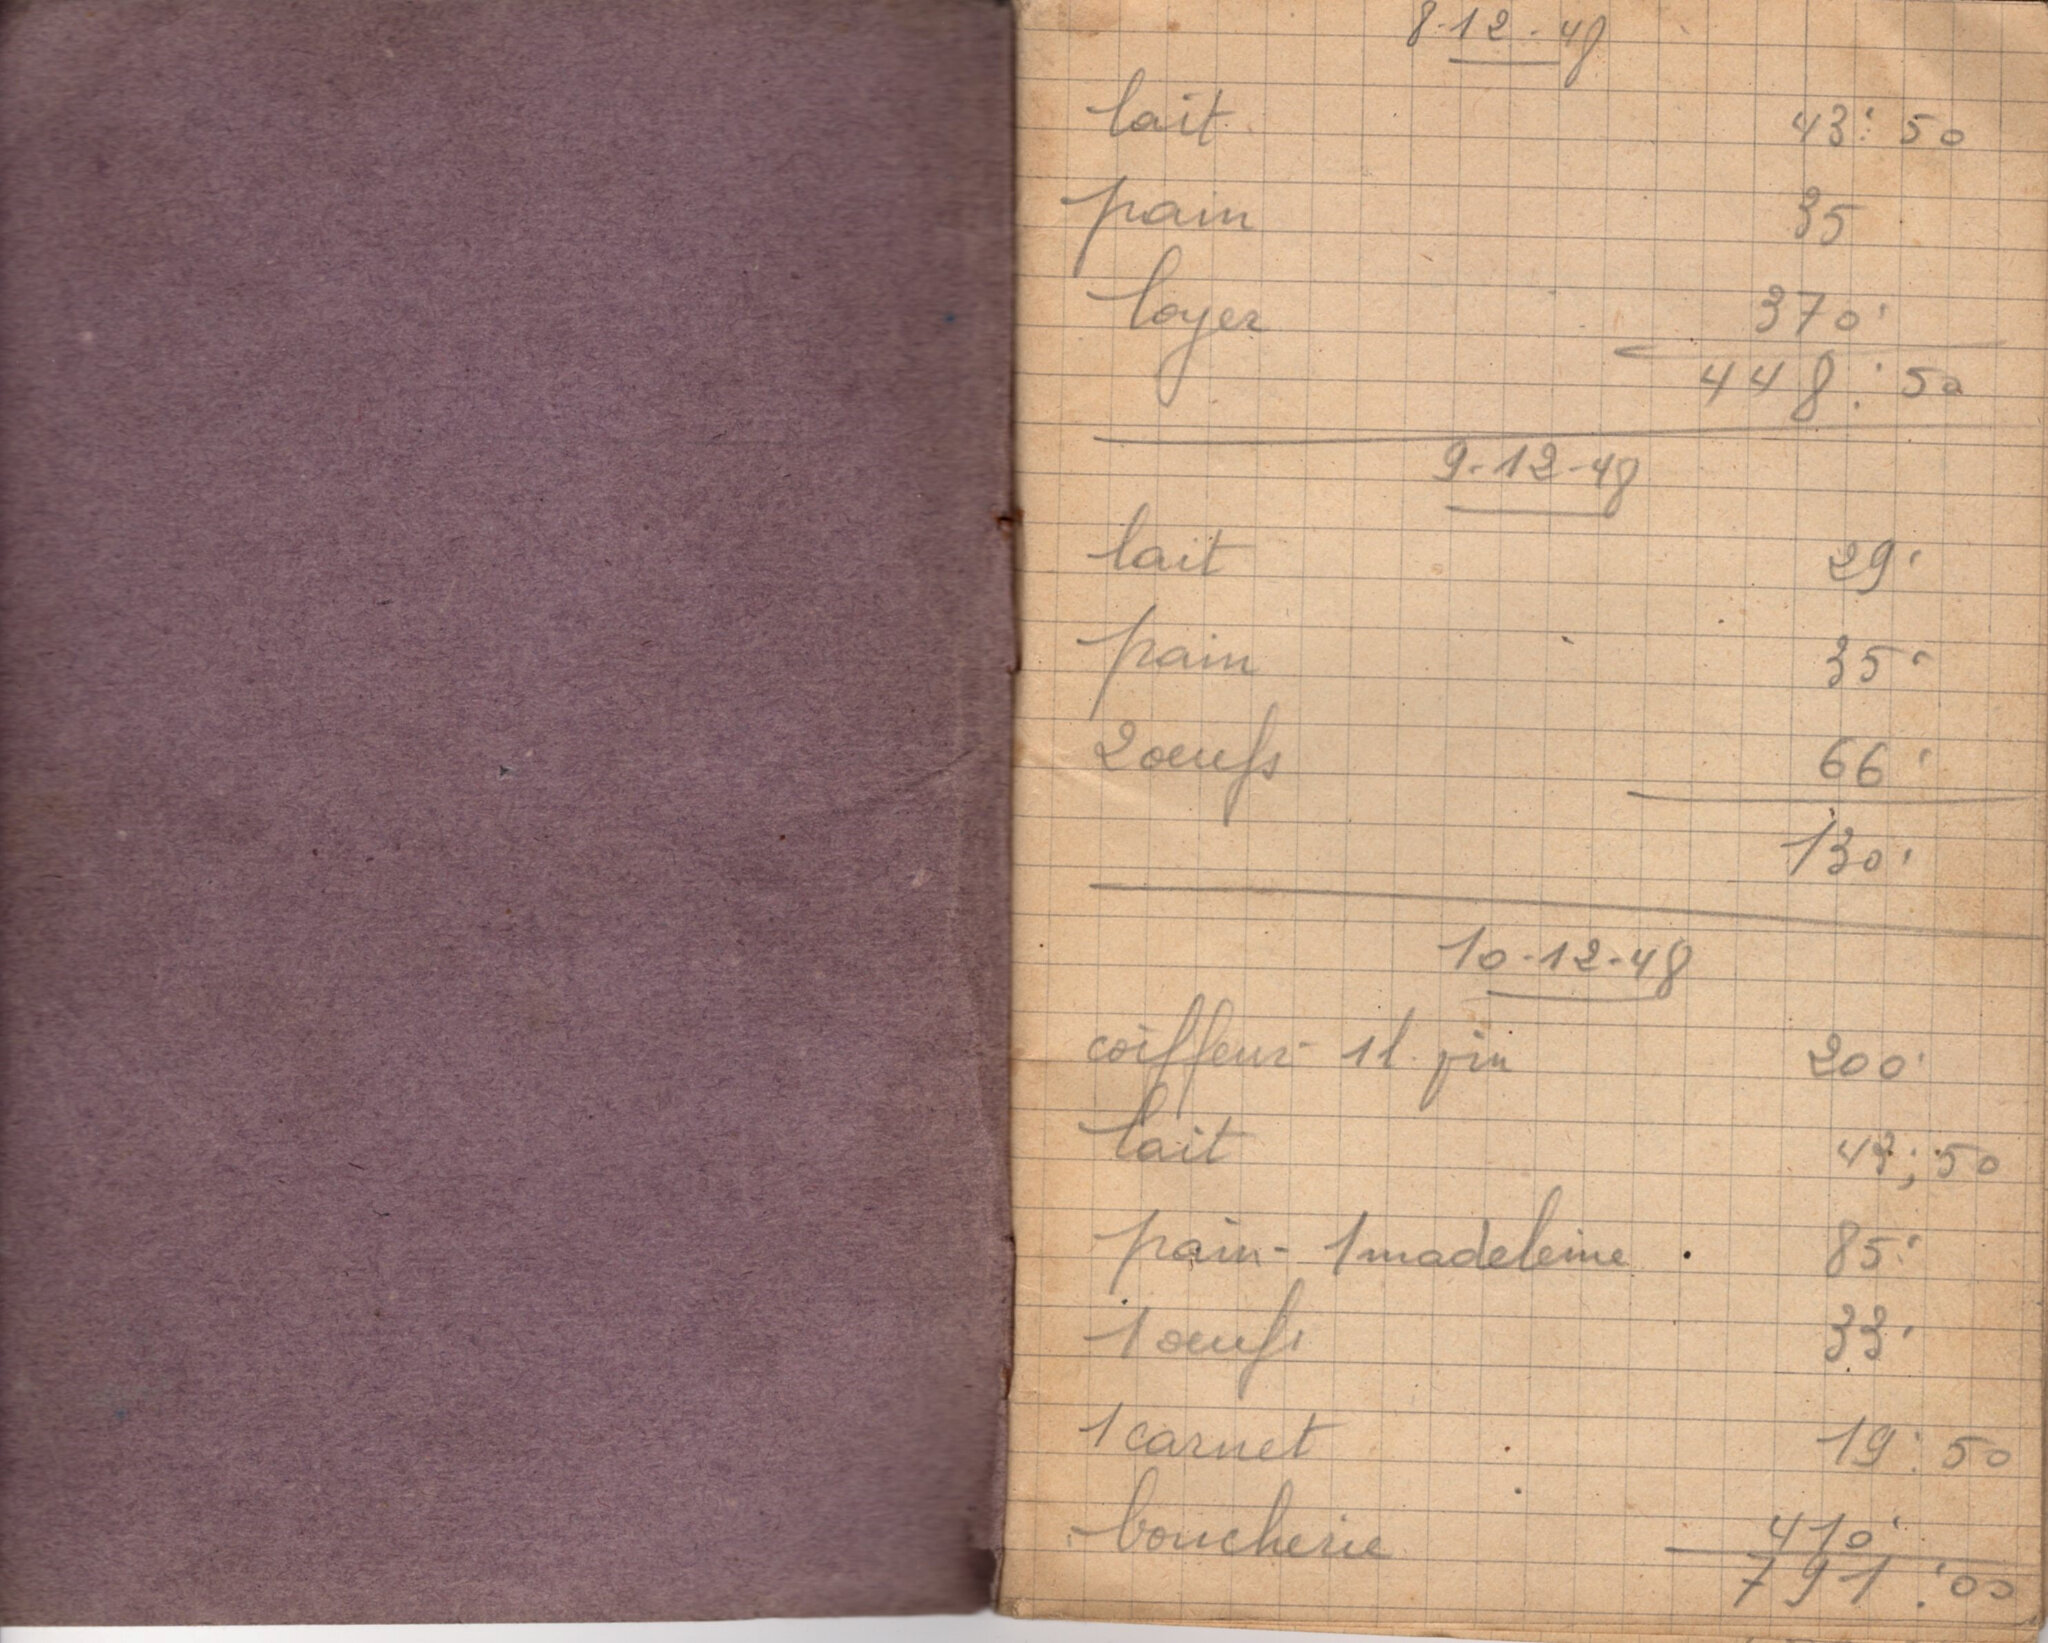 8-12-48
lait 43:50
pain 35
loyer 370'
448:50
9-12-48
lait 29'
pain 35'
2 œufs 66'
130'
10-12-48
coiffeur - 1 l. 200'
lait 43;50
pain - 1 madeleine 85'
1 œufs 33'
1 carnet 19:50
boucherie 410'
791:00